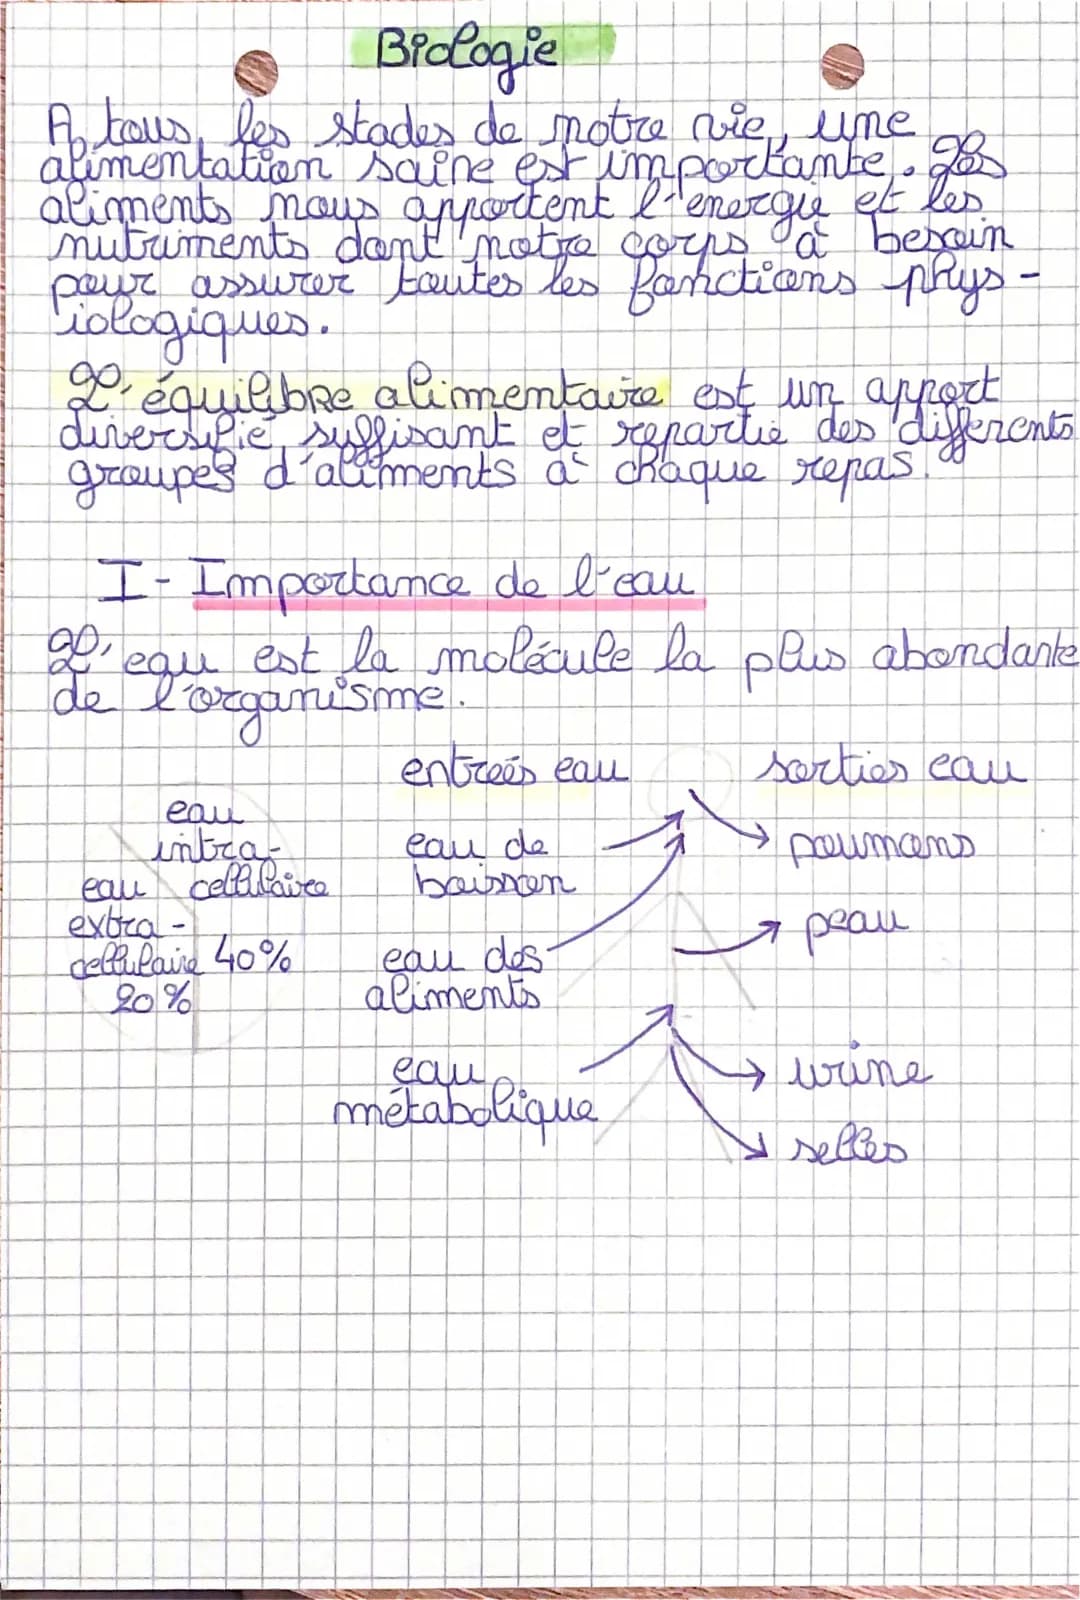 Biologie
A tous les stades de notre vie, une
alimentation saine est importante. Les
aliments nous apportent l'energie et les
nutriments dont notre corps à besoin
pour assurer toutes les fonctions phys-
iologiques.
L'équilibre alimentaire est un apport
diversifié, suffisant et repartie des differents
groupes d'aliments à chaque repas.
I- Importance de l'eau
L'eau est la molécule la plus abondante
de l'organisme.
entreés eau
sorties eau
eau
intra-
cellulaire
40%
eau
extra-
cellulaire
20%
eau de
boisson
eau des
aliments
eau
métabolique
poumons
peau
urine
selles